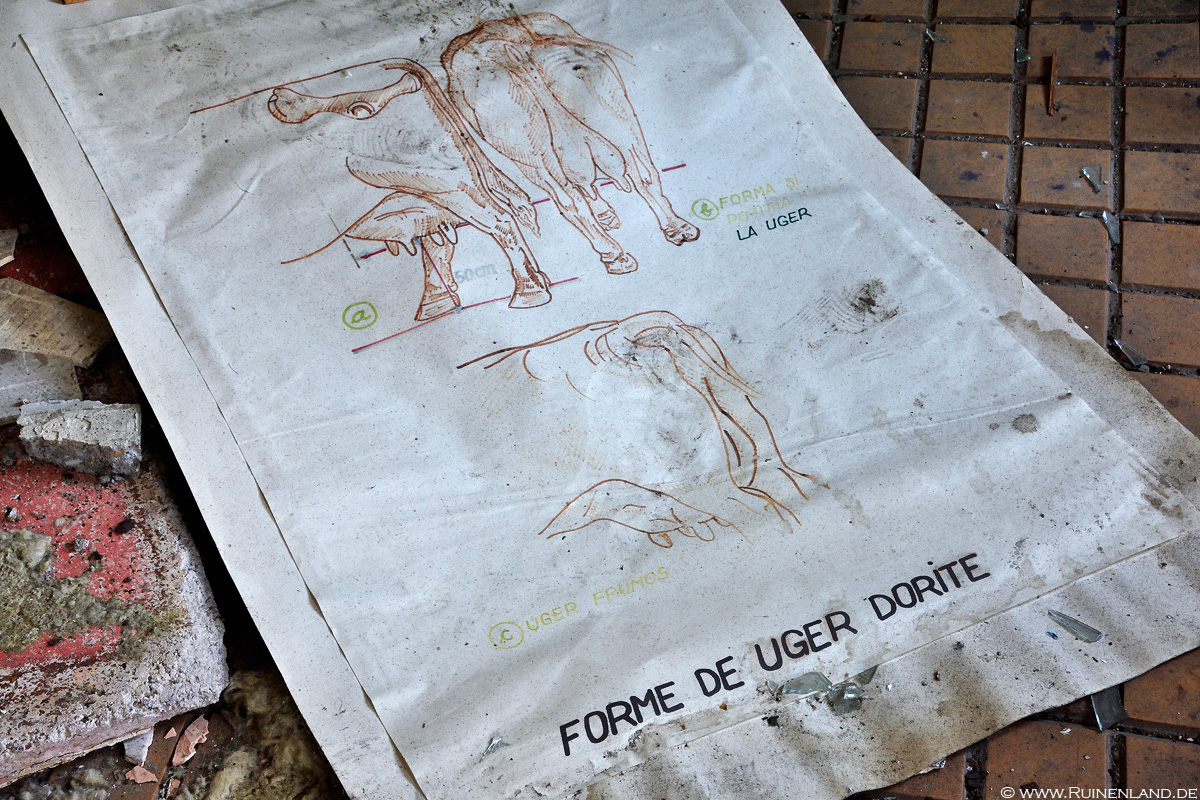 ⓑ FORMA ȘI
POZIȚIA
LA UGER
50cm
ⓐ
ⓒ UGER FRUMOS
FORME DE UGER DORITE
© www.Ruinenland.de